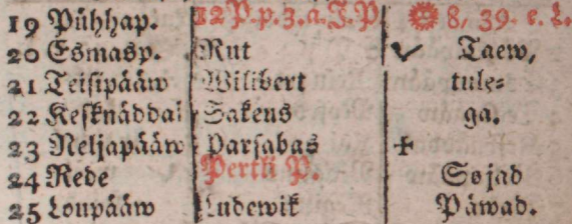 19 Pühhap. 12 P. p. 3. a. J. P. 8, 39. e. L.
20 Esmasp. Rut Taew,
21 Teisipääw Wilibert tule=
22 Kesknäddal Sakeus ga.
23 Neljapääw Parsabas
24 Rede Pertli P. Sojad
25 Loupääw Ludewik Päwad.